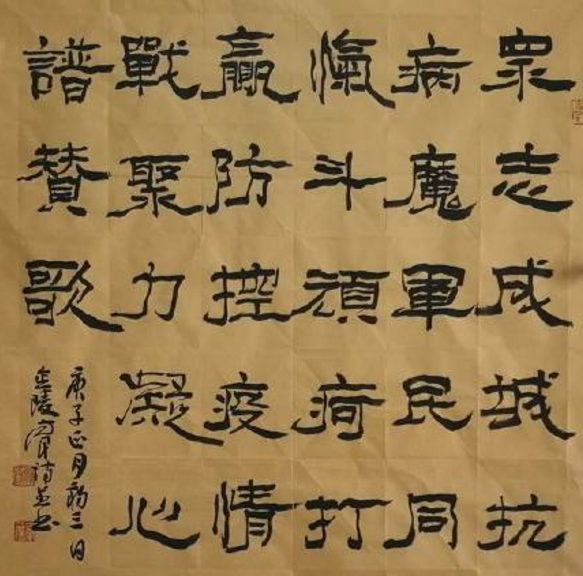 眾志成城抗
病魔軍民同
愾斗頑疴打
贏防控疫情
戰聚力凝心
譜贊歌
庚子正月初三日
金陵詩并书